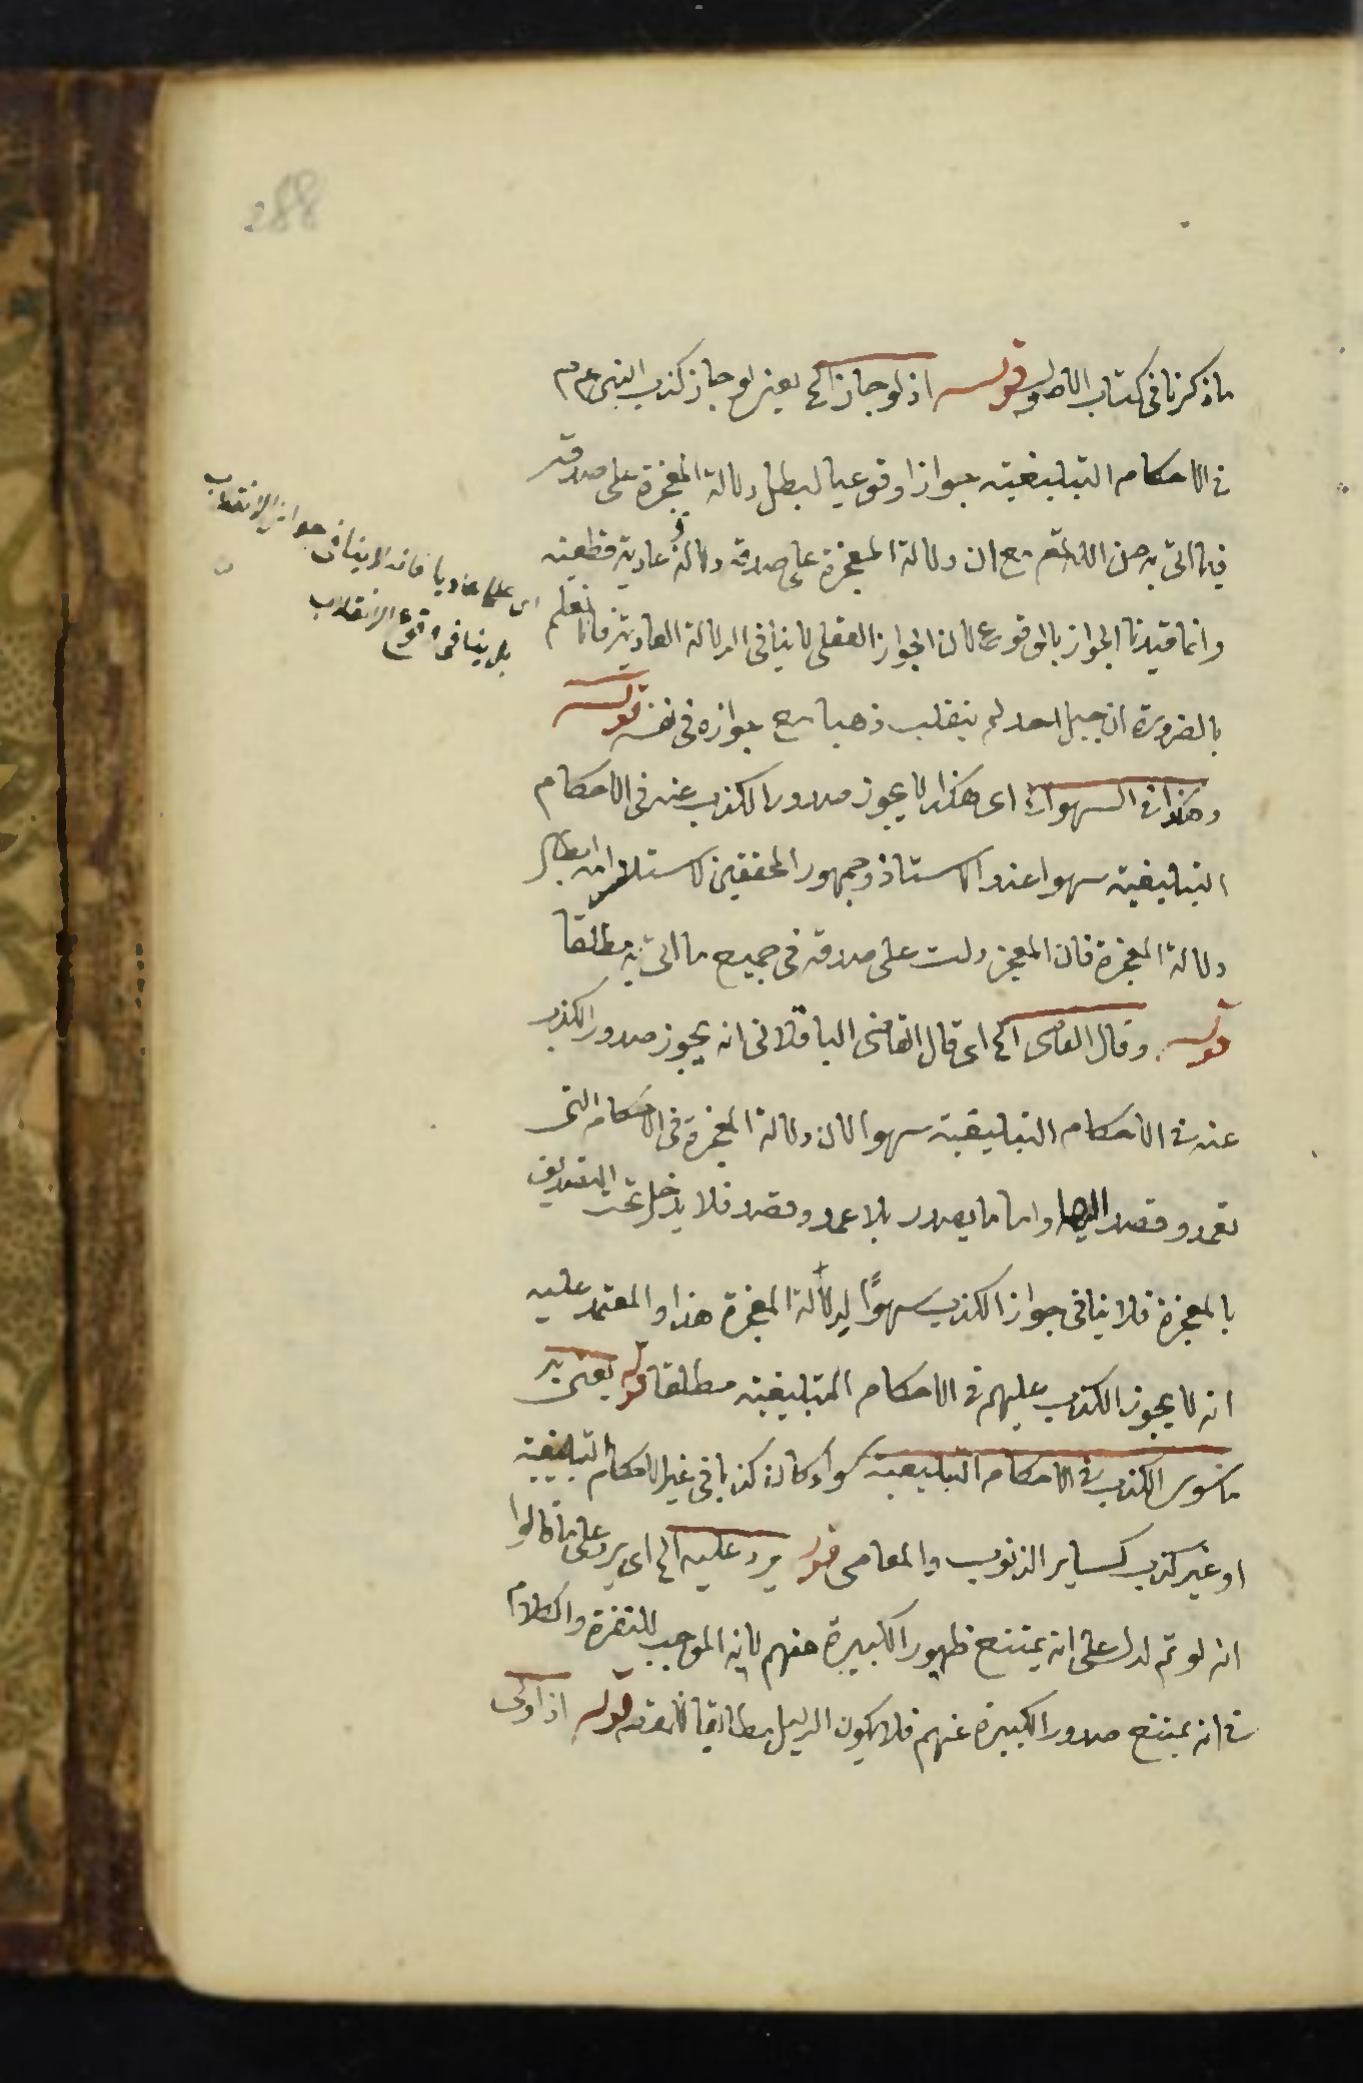 288
ما ذكرنا فى كتاب الاصول قوله اذ لو جاز الخ يعنى لو جاز كذب النبى عم م
فى الاحكام التبليغية جوازا وقوعيا لبطل دلالة المعجزة على صدقه
فيما اتى به من الله تع مع ان دلالة المعجزة على صدقه دلالة عادية قطعية
وانما قيدنا الجواز بالوقوع لان الجواز العقلى لا ينافى الدلالة العادية فانا نعلم
بالضرورة ان جبل احد لم ينقلب ذهبا مع جوازه فى نفسه قوله
وهكذا فى السهو اه اى هكذا لا يجوز صدور الكذب عنه فى الاحكام
التبليغية سهوا عند الاستاذ وجمهور المحققين لاستلزامه ابطال
دلالة المعجزة فان المعجز دلت على صدقه فى جميع ما اتى به مطلقا
قوله وقال القاضى الخ اى قال القاضى الباقلانى انه يجوز صدور الكذب
عنه فى الاحكام التبليغية سهوا لان دلالة المعجزة فى الاحكام التى
تعمد وقصد اليها واما ما يصدر بلا عمد وقصد فلا يدخل تحت التصديق
بالمعجزة فلا ينافى جواز الكذب سهوًا لدلالة المعجزة هذا والمعتمد عليه
انه لا يجوز الكذب عليهم فى الاحكام التبليغية مطلقا قوله يعنى به
ما سوى الكذب فى الاحكام التبليغية سواء كان كذبا فى غير الاحكام التبليغية
او غير كذب كساير الذنوب والمعاصى قوله يرد عليه الخ اى يرد على ما قالوا
انه لو تم لدل على انه يمتنع ظهور الكبيرة عنهم لانه الموجب للنفرة والكلام
فى انه يمتنع صدور الكبيرة عنهم فلا يكون الدليل مطابقا قوله اذ اولى
اى علما عاديا فانه لا ينافى جواز الانقلاب
بل ينافى وقوع الانقلاب